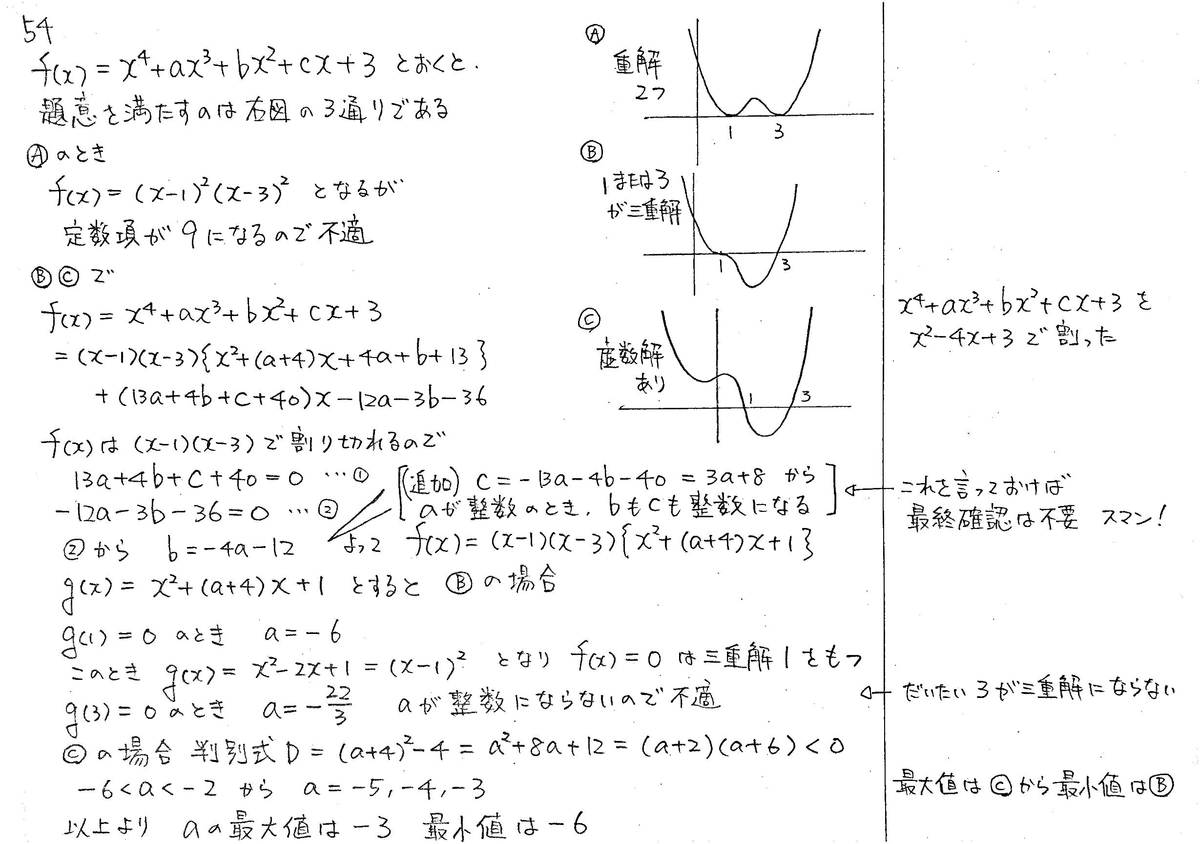 54
f(x) = x⁴+ax³+bx²+cx+3 とおくと.
題意を満たすのは右図の3通りである
Ⓐのとき
f(x) = (x-1)²(x-3)² となるが
定数項が9になるので不適
ⒷⒸで
f(x) = x⁴+ax³+bx²+cx+3
= (x-1)(x-3){x²+(a+4)x+4a+b+13}
+(13a+4b+c+40)x-12a-3b-36
f(x)は(x-1)(x-3)で割り切れるので
13a+4b+c+40=0 …①
-12a-3b-36=0 …②
[(追加) c=-13a-4b-40 = 3a+8 から
aが整数のとき、bもcも整数になる]
②から b=-4a-12 よって f(x)=(x-1)(x-3){x²+(a+4)x+1}
g(x) = x²+(a+4)x+1 とすると Ⓑの場合
g(1)=0 のとき a=-6
このとき g(x)= x²-2x+1=(x-1)² となり f(x)=0 は三重解1をもつ
g(3)=0 のとき a=-22/3 aが整数にならないので不適
Ⓒの場合 判別式D=(a+4)²-4=a²+8a+12=(a+2)(a+6)<0
-6<a<-2 から a=-5,-4,-3
以上より aの最大値は-3 最小値は-6
Ⓐ
重解
2つ
1 3
Ⓑ
1または3
が三重解
1 3
Ⓒ
虚数解
あり
1 3
x⁴+ax³+bx²+cx+3を
x²-4x+3で割った
←これを言っておけば
最終確認は不要 スマン!
←だいたい3が三重解にならない
最大値はⒸから最小値はⒷ